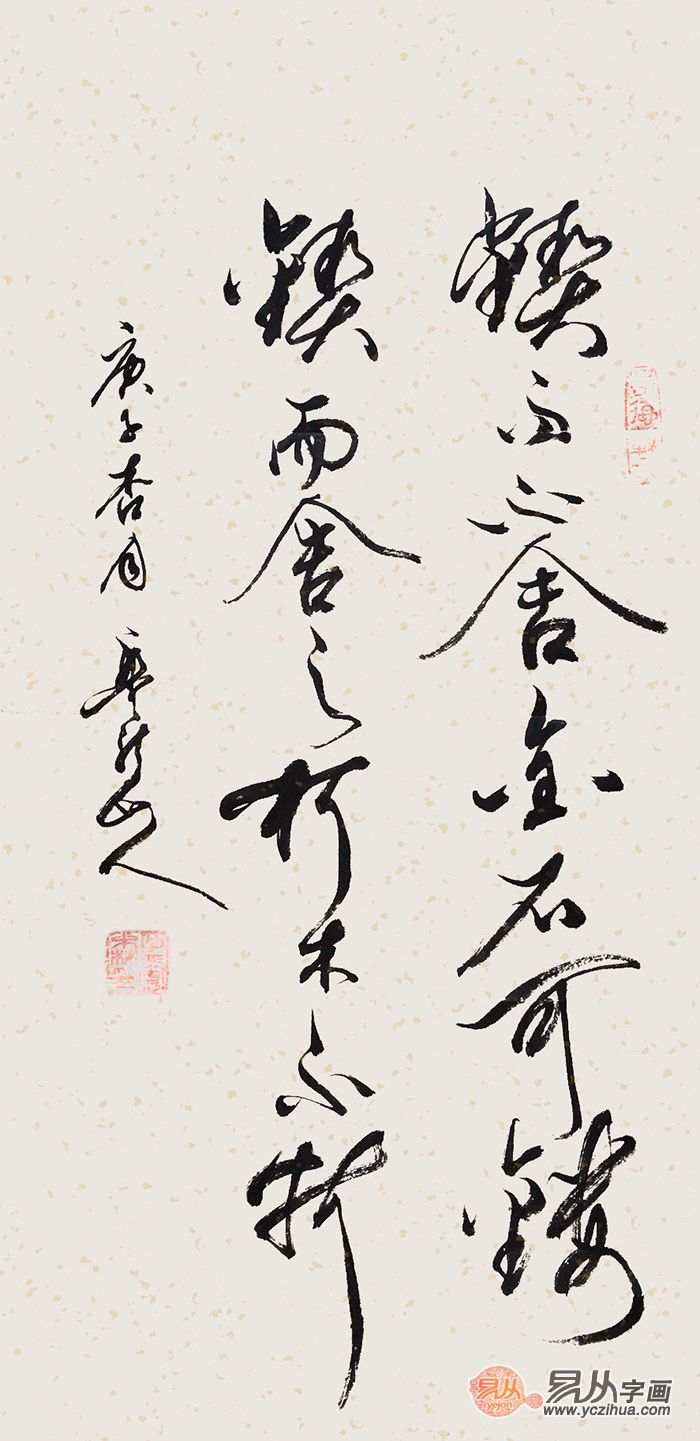 鍥而不舍金石可鏤
鍥而舍之朽木不折
庚子杏月 山人
易从
易从字画
www.yczihua.com